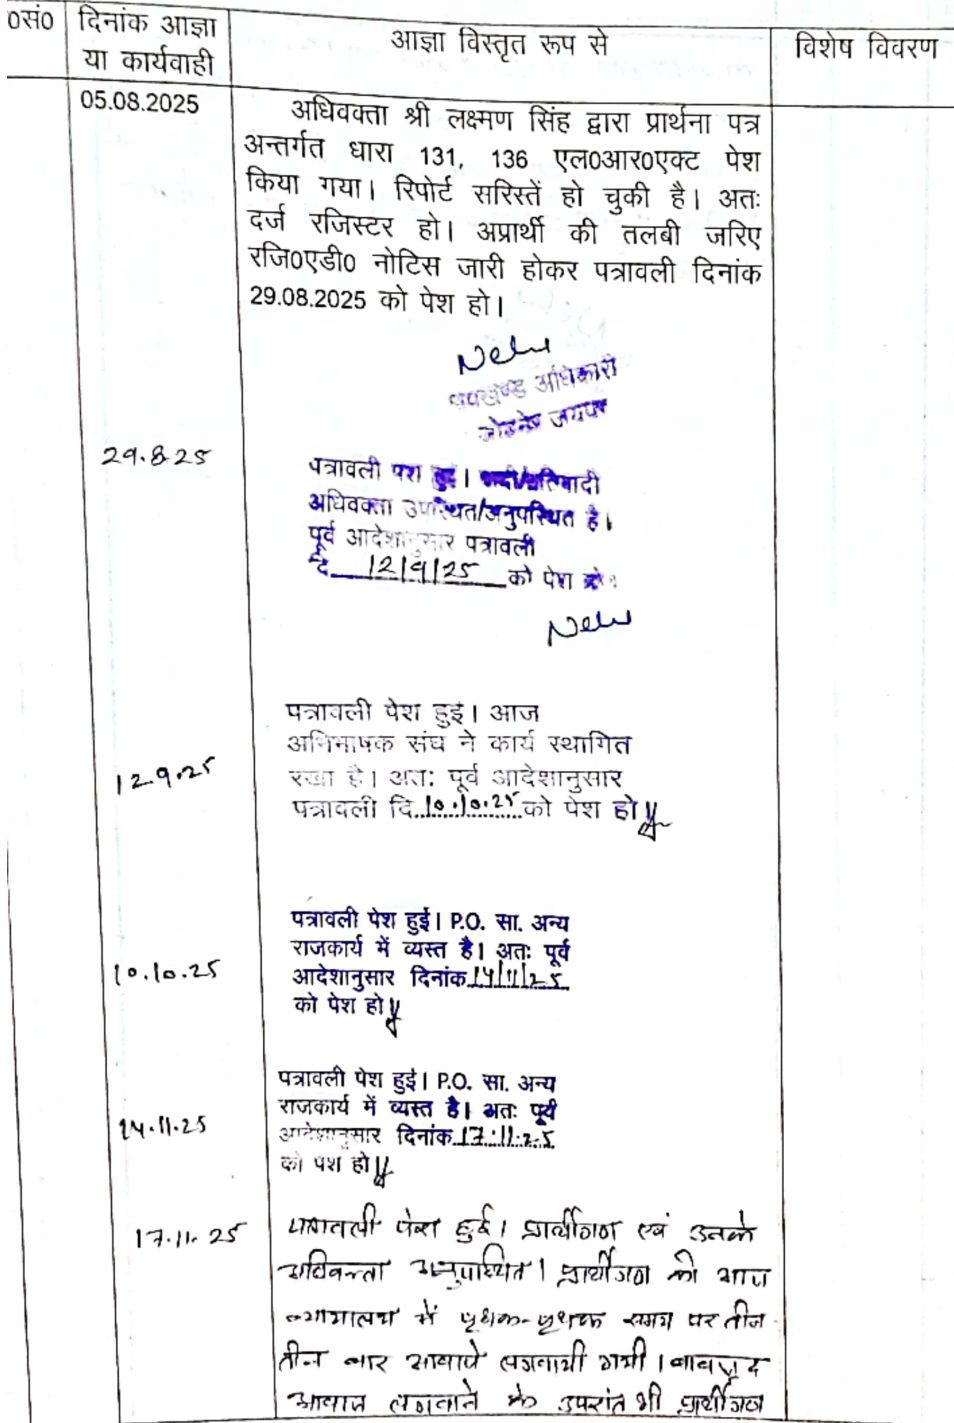 ०सं० दिनांक आज्ञा या कार्यवाही आज्ञा विस्तृत रूप से विशेष विवरण
05.08.2025
अधिवक्ता श्री लक्ष्मण सिंह द्वारा प्रार्थना पत्र
अन्तर्गत धारा 131, 136 एल०आर०एक्ट पेश
किया गया। रिपोर्ट सरिस्तें हो चुकी है। अतः
दर्ज रजिस्टर हो। अप्रार्थी की तलबी जरिए
रजि०एडी० नोटिस जारी होकर पत्रावली दिनांक
29.08.2025 को पेश हो।
उपखण्ड अधिकारी
जोबनेर जयपुर
29.8.25
पत्रावली पेश हुई। वादी/प्रतिवादी
अधिवक्ता उपस्थित/अनुपस्थित है।
पूर्व आदेशानुसार पत्रावली
दि 12/9/25 को पेश हो।
12.9.25
पत्रावली पेश हुई। आज
अभिभाषक संघ ने कार्य स्थागित
रखा है। अतः पूर्व आदेशानुसार
पत्रावली दि. 10.10.25 को पेश हो
10.10.25
पत्रावली पेश हुई। P.O. सा. अन्य
राजकार्य में व्यस्त है। अतः पूर्व
आदेशानुसार दिनांक 14/11/25
को पेश हो
14.11.25
पत्रावली पेश हुई। P.O. सा. अन्य
राजकार्य में व्यस्त है। अतः पूर्व
आदेशानुसार दिनांक 17.11.25
को पेश हो
17.11.25
पत्रावली पेश हुई। प्रार्थीगण एवं उनके
अधिवक्ता अनुपस्थित। प्रार्थीगण को आज
न्यायालय में पृथक-पृथक समय पर तीन
तीन बार आवाजे लगवायी गयी। बावजूद
आवाज लगवाने के उपरांत भी प्रार्थीगण